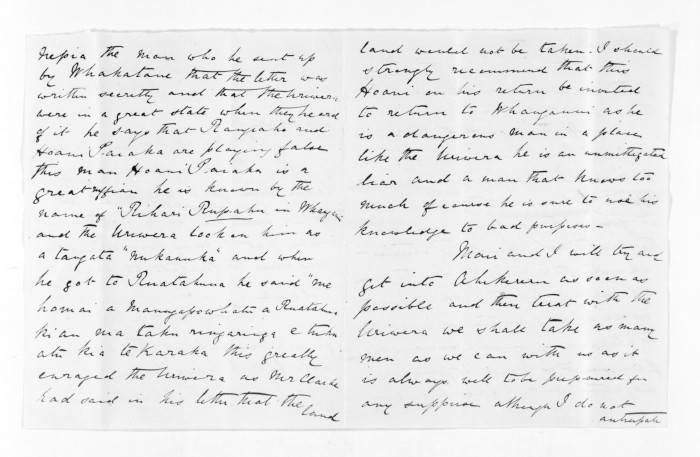 Hepia the man who he sent up
by Whakatane that the letter was
written secretly and that the Urewera
were in a great state when they heard
of it he says that Rangiaho and
Hoani Paraka are playing false
this man Hoani Paraka is a
great ruffian he is known by the
name of "Rihari Rupahu in Whanganui
and the Urewera look on him as
a tangata "nukanuka" and when
he got to Ruatahuna he said "me
homai a Maungapowhatu a Ruatahuna
kia ma taku ringaringa e tuku
atu kia te Karaka this greatly
enraged the Urewera as Mr Clarke
had said in his letter that the
land
land would not be taken. I should
strongly recommend that this
Hoani on his return be invited
to return to Whanganui as he
is a dangerous man in a place
like the Urewera he is an unmitigated
liar and a man that knows too
much of course he is sure to use his
knowledge to bad purposes -
and I will try and
get into Ahikereru as soon as
possible and then treat with the
Urewera we shall take as many
men as we can with us as it
is always well to be prepaired for
any supprise athough I do not
anticipate